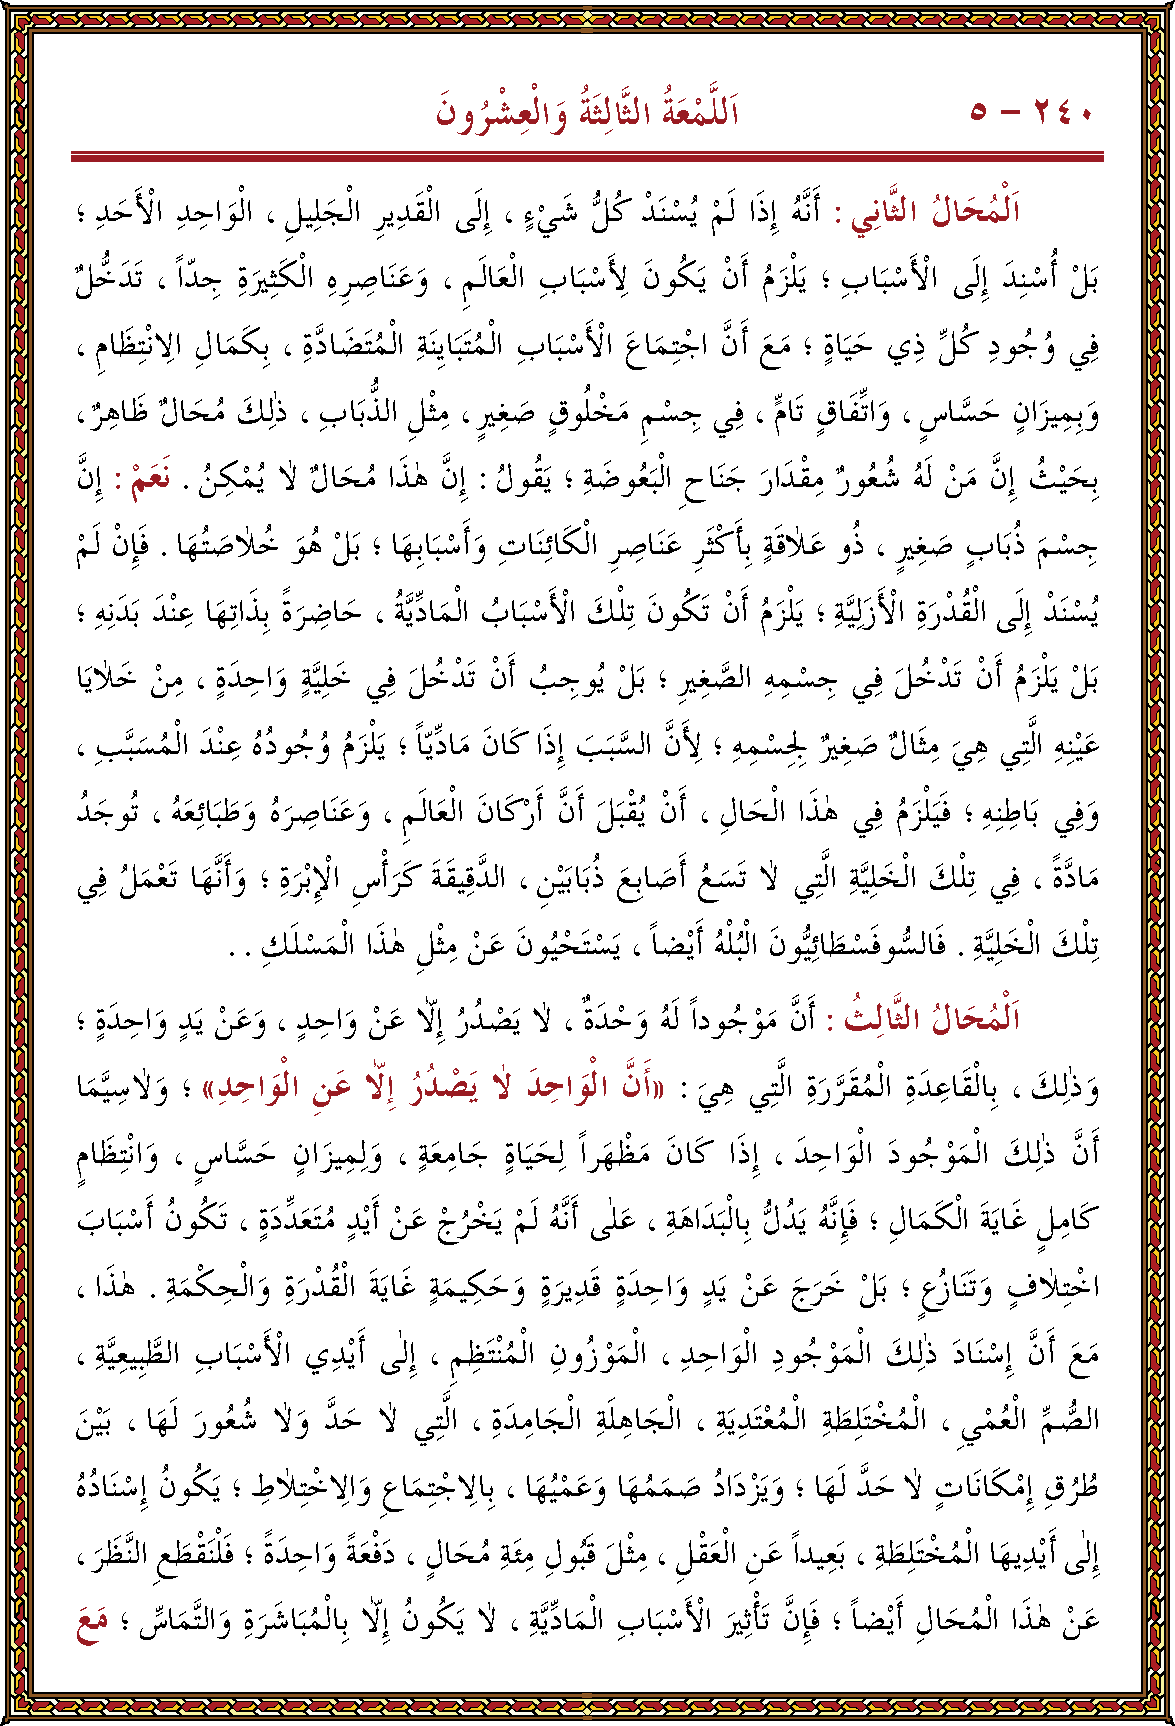 ٢٤٠ - ٥ اَللَّمْعَةُ الثَّالِثَةُ وَالْعِشْرُونَ
اَلْمُحَالُ الثَّانِي : أَنَّهُ إِذَا لَمْ يُسْنَدْ كُلُّ شَيْءٍ ، إِلَى الْقَدِيرِ الْجَلِيلِ ، الْوَاحِدِ الْأَحَدِ ؛
بَلْ أُسْنِدَ إِلَى الْأَسْبَابِ ؛ يَلْزَمُ أَنْ يَكُونَ لِأَسْبَابِ الْعَالَمِ ، وَعَنَاصِرِهِ الْكَثِيرَةِ جِدّاً ، تَدَخُّلٌ
فِي وُجُودِ كُلِّ ذِي حَيَاةٍ ؛ مَعَ أَنَّ اجْتِمَاعَ الْأَسْبَابِ الْمُتَبَايِنَةِ الْمُتَضَادَّةِ ، بِكَمَالِ الِانْتِظَامِ ،
وَبِمِيزَانٍ حَسَّاسٍ ، وَاتِّفَاقٍ تَامٍّ ، فِي جِسْمِ مَخْلُوقٍ صَغِيرٍ ، مِثْلِ الذُّبَابِ ، ذٰلِكَ مُحَالٌ ظَاهِرٌ ،
بِحَيْثُ إِنَّ مَنْ لَهُ شُعُورٌ مِقْدَارَ جَنَاحِ الْبَعُوضَةِ ؛ يَقُولُ : إِنَّ هٰذَا مُحَالٌ لَا يُمْكِنُ . نَعَمْ : إِنَّ
جِسْمَ ذُبَابٍ صَغِيرٍ ، ذُو عَلَاقَةٍ بِأَكْثَرِ عَنَاصِرِ الْكَائِنَاتِ وَأَسْبَابِهَا ؛ بَلْ هُوَ خُلَاصَتُهَا . فَإِنْ لَمْ
يُسْنَدْ إِلَى الْقُدْرَةِ الْأَزَلِيَّةِ ؛ يَلْزَمُ أَنْ تَكُونَ تِلْكَ الْأَسْبَابُ الْمَادِّيَّةُ ، حَاضِرَةً بِذَاتِهَا عِنْدَ بَدَنِهِ ؛
بَلْ يَلْزَمُ أَنْ تَدْخُلَ فِي جِسْمِهِ الصَّغِيرِ ؛ بَلْ يُوجِبُ أَنْ تَدْخُلَ فِي خَلِيَّةٍ وَاحِدَةٍ ، مِنْ خَلَايَا
عَيْنِهِ الَّتِي هِيَ مِثَالٌ صَغِيرٌ لِجِسْمِهِ ؛ لِأَنَّ السَّبَبَ إِذَا كَانَ مَادِّيّاً ؛ يَلْزَمُ وُجُودُهُ عِنْدَ الْمُسَبَّبِ ،
وَفِي بَاطِنِهِ ؛ فَيَلْزَمُ فِي هٰذَا الْحَالِ ، أَنْ يُقْبَلَ أَنَّ أَرْكَانَ الْعَالَمِ ، وَعَنَاصِرَهُ وَطَبَائِعَهُ ، تُوجَدُ
مَادَّةً ، فِي تِلْكَ الْخَلِيَّةِ الَّتِي لَا تَسَعُ أَصَابِعَ ذُبَابَيْنِ ، الدَّقِيقَةَ كَرَأْسِ الْإِبْرَةِ ؛ وَأَنَّهَا تَعْمَلُ فِي
تِلْكَ الْخَلِيَّةِ . فَالسُّوفَسْطَائِيُّونَ الْبُلْهُ أَيْضاً ، يَسْتَحْيُونَ عَنْ مِثْلِ هٰذَا الْمَسْلَكِ . .
اَلْمُحَالُ الثَّالِثُ : أَنَّ مَوْجُوداً لَهُ وَحْدَةٌ ، لَا يَصْدُرُ إِلَّا عَنْ وَاحِدٍ ، وَعَنْ يَدٍ وَاحِدَةٍ ؛
وَذٰلِكَ ، بِالْقَاعِدَةِ الْمُقَرَّرَةِ الَّتِي هِيَ : «أَنَّ الْوَاحِدَ لَا يَصْدُرُ إِلَّا عَنِ الْوَاحِدِ» ؛ وَلَاسِيَّمَا
أَنَّ ذٰلِكَ الْمَوْجُودَ الْوَاحِدَ ، إِذَا كَانَ مَظْهَراً لِحَيَاةٍ جَامِعَةٍ ، وَلِمِيزَانٍ حَسَّاسٍ ، وَانْتِظَامٍ
كَامِلٍ غَايَةَ الْكَمَالِ ؛ فَإِنَّهُ يَدُلُّ بِالْبَدَاهَةِ ، عَلٰى أَنَّهُ لَمْ يَخْرُجْ عَنْ أَيْدٍ مُتَعَدِّدَةٍ ، تَكُونُ أَسْبَابَ
اخْتِلَافٍ وَتَنَازُعٍ ؛ بَلْ خَرَجَ عَنْ يَدٍ وَاحِدَةٍ قَدِيرَةٍ وَحَكِيمَةٍ غَايَةَ الْقُدْرَةِ وَالْحِكْمَةِ . هٰذَا ،
مَعَ أَنَّ إِسْنَادَ ذٰلِكَ الْمَوْجُودِ الْوَاحِدِ ، الْمَوْزُونِ الْمُنْتَظِمِ ، إِلٰى أَيْدِي الْأَسْبَابِ الطَّبِيعِيَّةِ ،
الصُّمِّ الْعُمْيِ ، الْمُخْتَلِطَةِ الْمُعْتَدِيَةِ ، الْجَاهِلَةِ الْجَامِدَةِ ، الَّتِي لَا حَدَّ وَلَا شُعُورَ لَهَا ، بَيْنَ
طُرُقِ إِمْكَانَاتٍ لَا حَدَّ لَهَا ؛ وَيَزْدَادُ صَمَمُهَا وَعَمْيُهَا ، بِالِاجْتِمَاعِ وَالِاخْتِلَاطِ ؛ يَكُونُ إِسْنَادُهُ
إِلٰى أَيْدِيهَا الْمُخْتَلِطَةِ ، بَعِيداً عَنِ الْعَقْلِ ، مِثْلَ قُبُولِ مِئَةِ مُحَالٍ ، دَفْعَةً وَاحِدَةً ؛ فَلْنَقْطَعِ النَّظَرَ ،
عَنْ هٰذَا الْمُحَالِ أَيْضاً ؛ فَإِنَّ تَأْثِيرَ الْأَسْبَابِ الْمَادِّيَّةِ ، لَا يَكُونُ إِلَّا بِالْمُبَاشَرَةِ وَالتَّمَاسِّ ؛ مَعَ